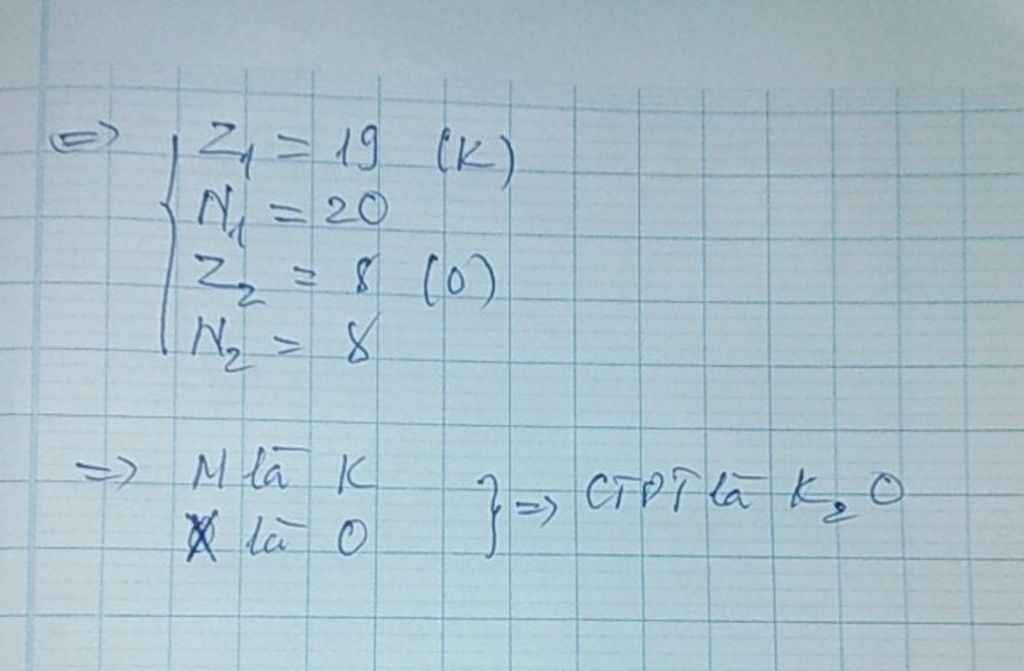 => { Z₁ = 19 (K)
N₁ = 20
Z₂ = 8 (O)
N₂ = 8
=> M là K
X là O } => CTPT là K₂O